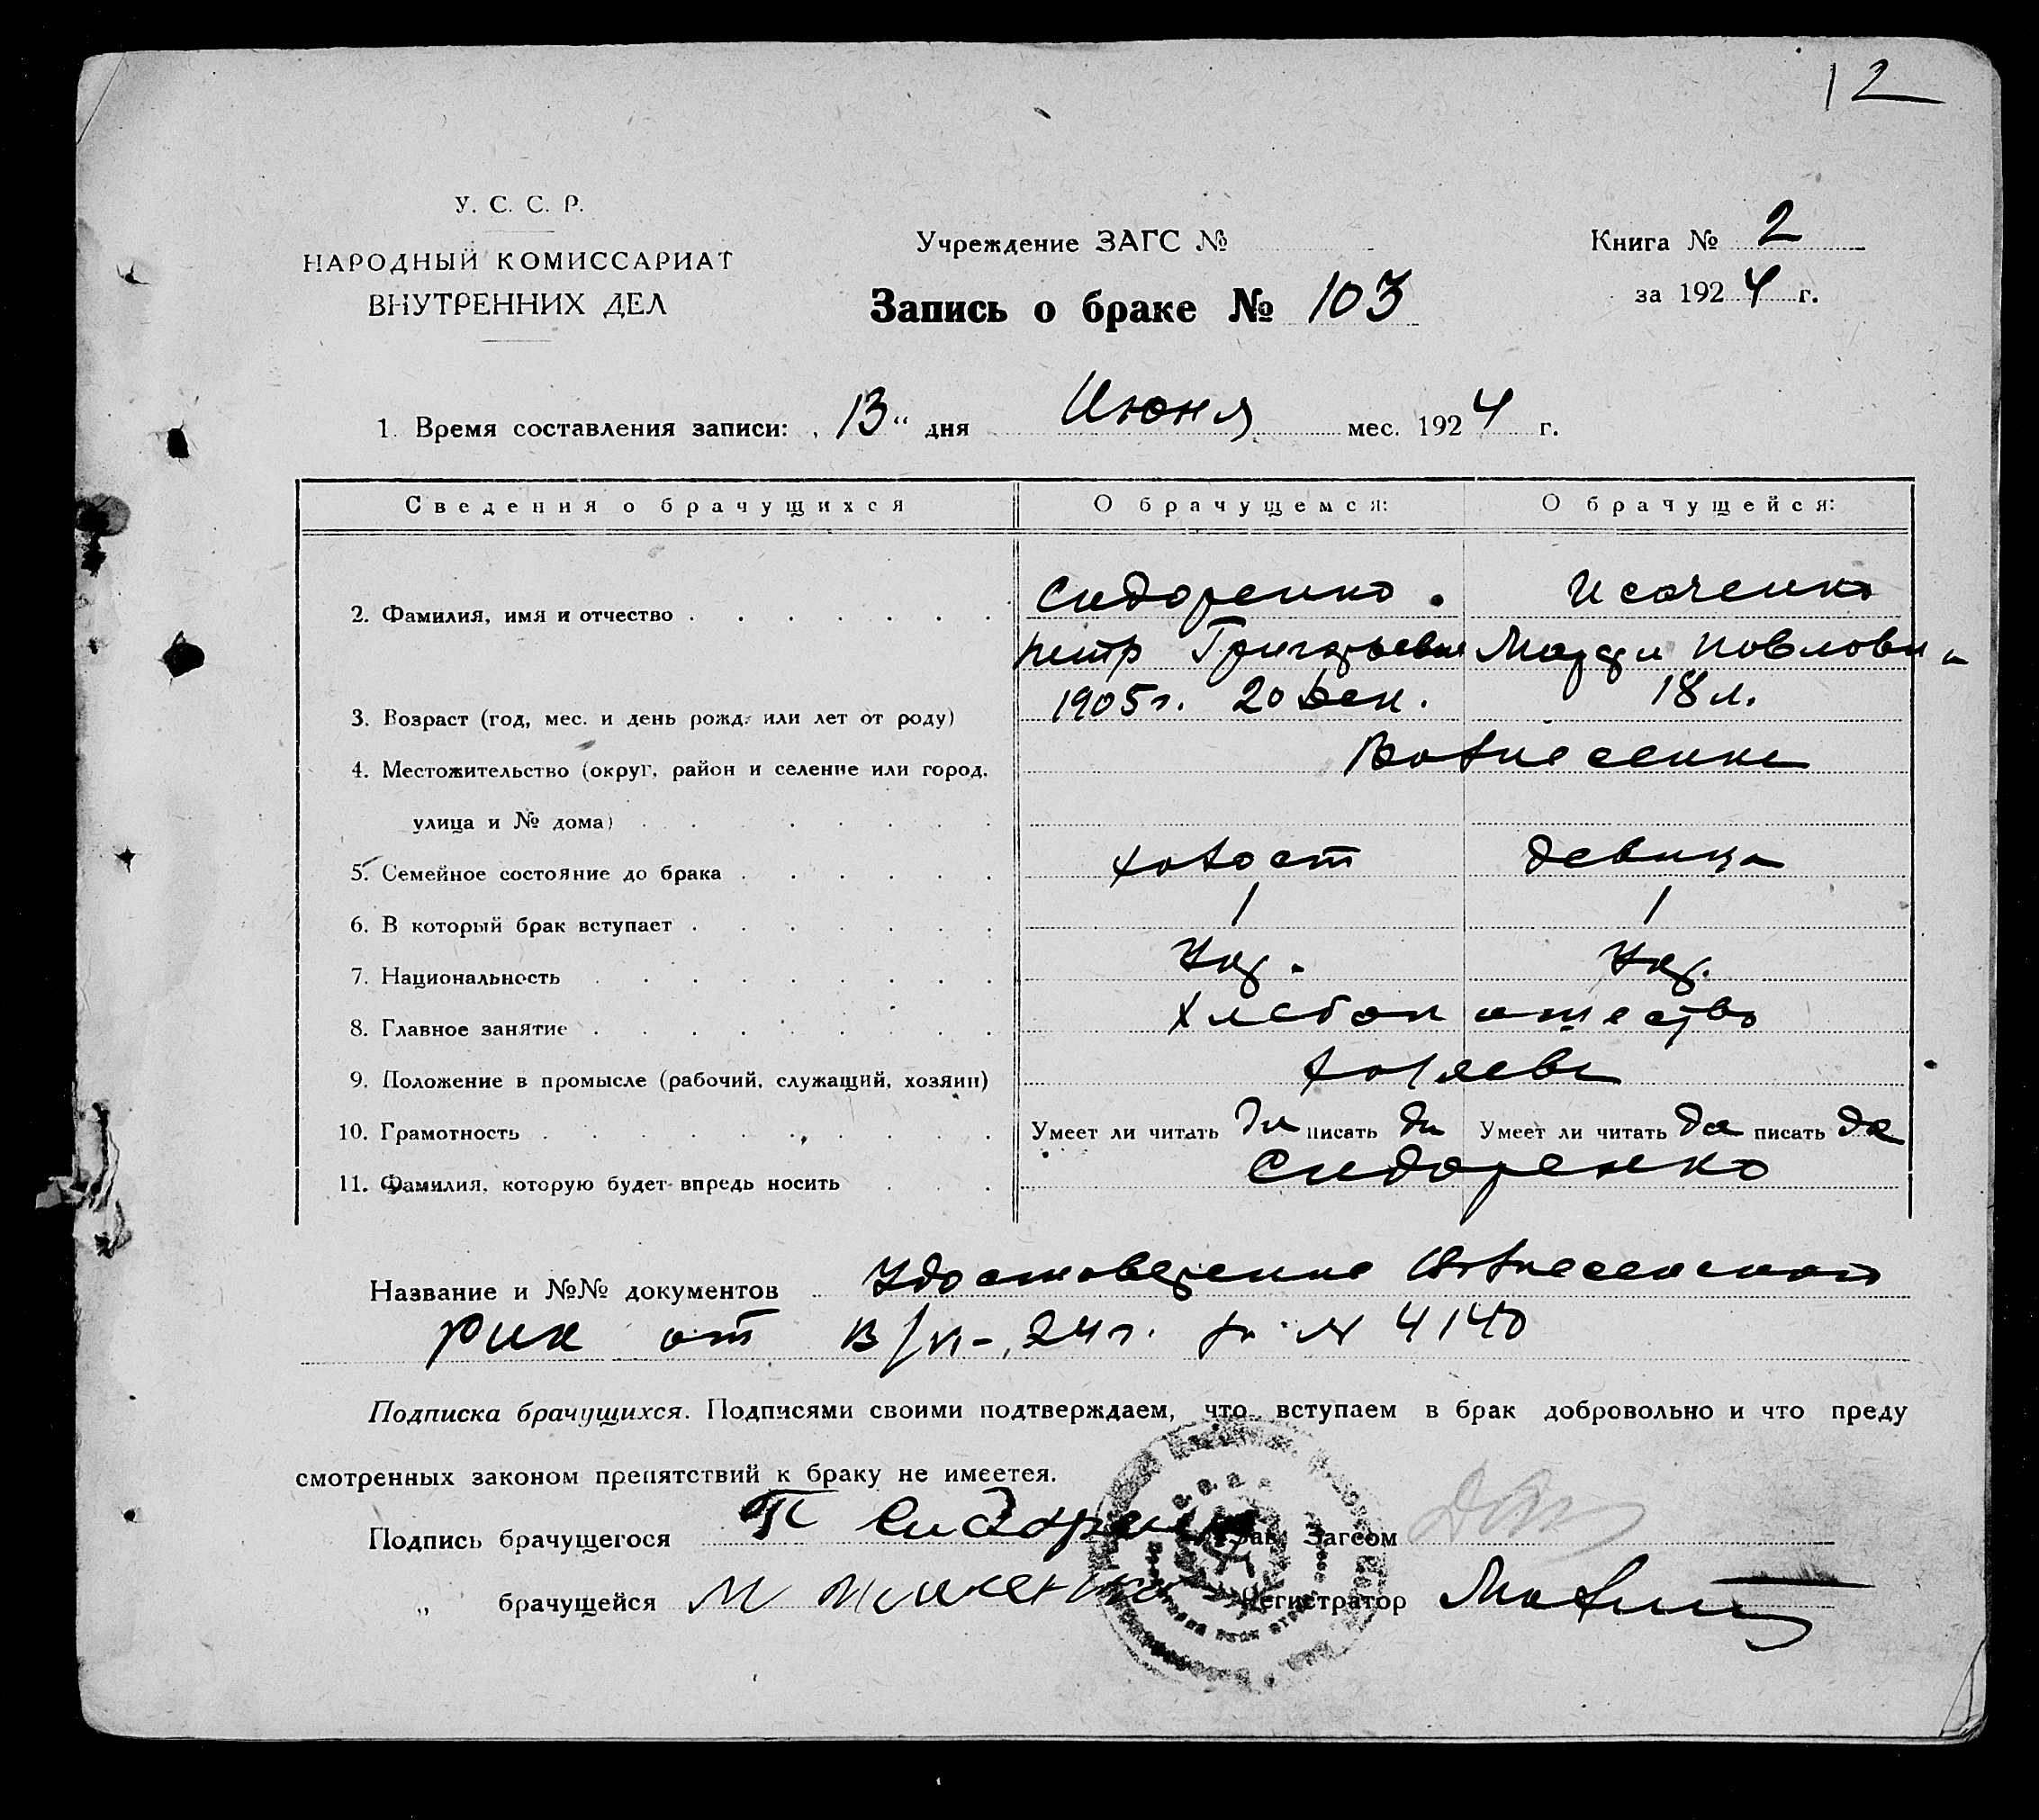 12
У. С. С. Р.
НАРОДНЫЙ КОМИССАРИАТ
ВНУТРЕННИХ ДЕЛ
Учреждение ЗАГС №
Запись о браке № 103
Книга № 2
за 1924 г.
1. Время составления записи: „13“ дня Июня мес. 1924 г.
Сведения о брачущихся О брачущемся: О брачущейся:
2. Фамилия, имя и отчество Сидоренко Исаченко
Петр Григорьевич Мария Павловна
3. Возраст (год, мес. и день рожд. или лет от роду) 1905г. 20 Дек. 18 л.
4. Местожительство (округ, район и селение или город,
улица и № дома) Вознесенск
5. Семейное состояние до брака холост девица
6. В который брак вступает 1 1
7. Национальность Укр. Укр.
8. Главное занятие хлебопашество
9. Положение в промысле (рабочий, служащий, хозяин) хозяева
10. Грамотность Умеет ли читать да писать да Умеет ли читать да писать да
11. Фамилия, которую будет впредь носить Сидоренко
Название и №№ документов Удостоверение Вознесенского
Рик от 13/VI-24г. за № 4140
Подписка брачущихся. Подписями своими подтверждаем, что вступаем в брак добровольно и что преду
смотренных законом препятствий к браку не имеется.
Подпись брачущегося П Сидоренко Зав. Загсом
„ брачущейся М Регистратор